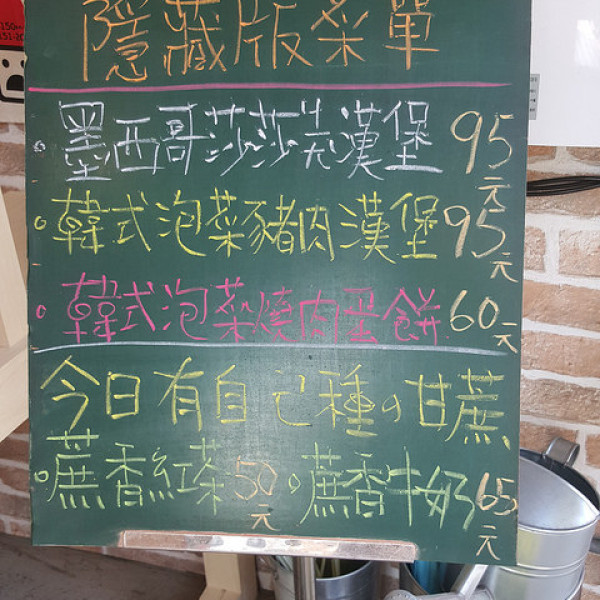 隱藏版菜單
墨西哥莎莎羌漢堡 95元
韓式泡菜豬肉漢堡 95元
韓式泡菜燒肉蛋餅 60元
今日有自己種の甘蔗
蔗香紅茶 50元。蔗香牛奶 65元